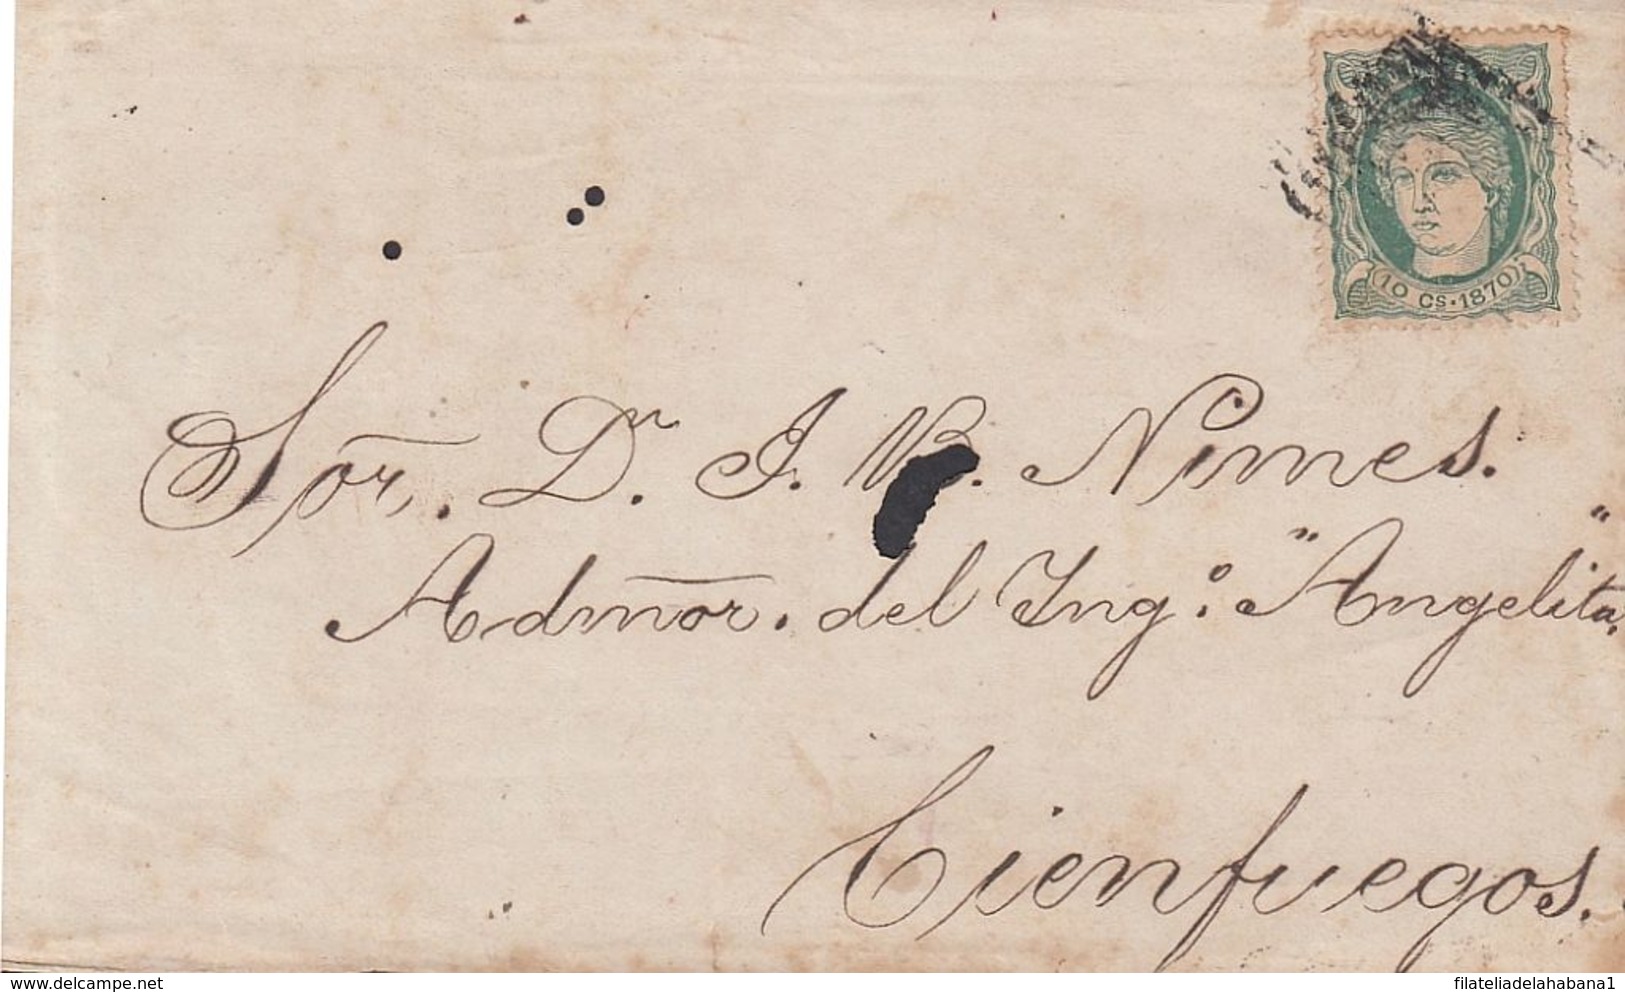 10 CS. 1870
Sõr. Dn. J. B. Nimes.
Admõr. del Yng.o "Angelita"
Cienfuegos.
www.delcampe.net
filateliadelahabana1